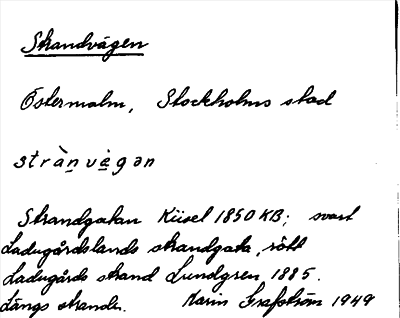 Strandvägen
Östermalm, Stockholms stad
stràṉvèg̱ən
Strandgatan Kiisel 1850 KB; svart
Ladugårdslands strandgata, rött
Ladugårds strand Lundgren, 1885.
Längs stranden. Karin Grafström 1949